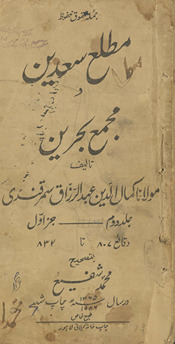 جملہ حقوق محفوظ
مطلع سعدین
و
مجمع بحرین
تالیف
مولانا کمال الدین عبد الرزاق سمرقندی
جلد دوم جزء اول
وقائع ۸۰۷ تا ۸۳۲
بتصحیح
محمد شفیع
در سال چاپ شد
لاہور